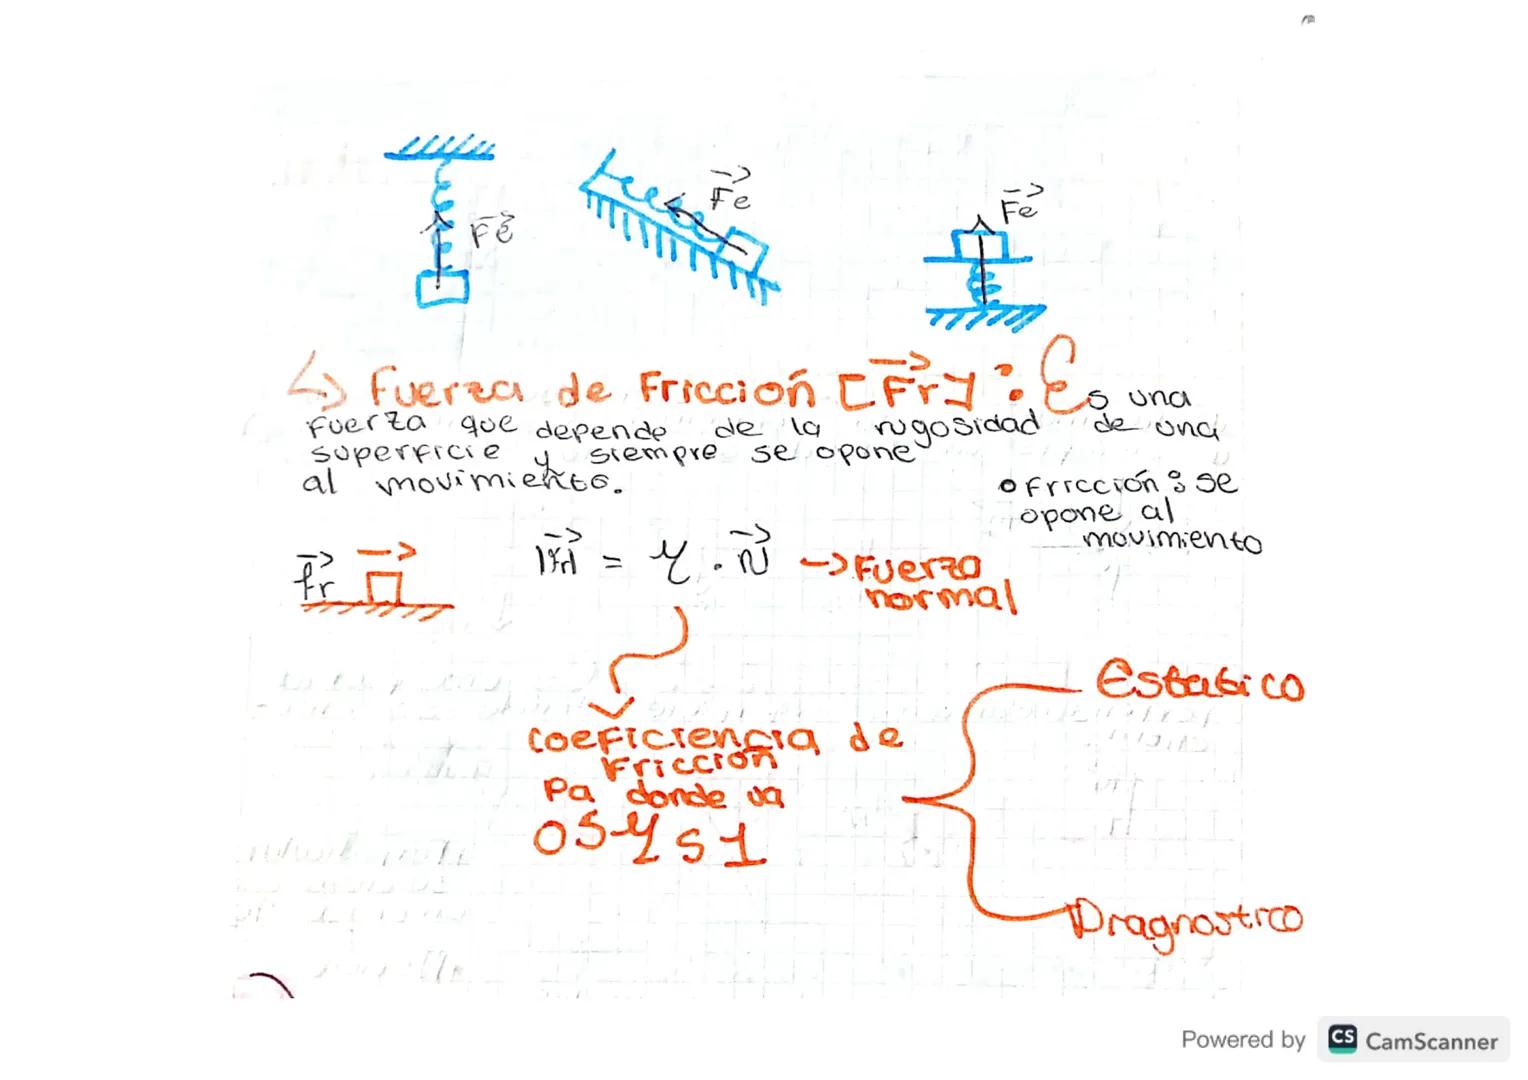 Fe
Fe
Fe
↳ Fuerza de Fricción [Fr]: Es una
fuerza que depende de la rugosidad de una
superficie y siempre se opone
al movimiento.
• Fricción: se
opone al
movimiento
fr →
|Fr| = μ . N → Fuerza
normal
Coeficiencia de
Fricción
Pa donde va
0 ≤ μ ≤ 1
Estatico
Diagnostico
Powered by CS CamScanner